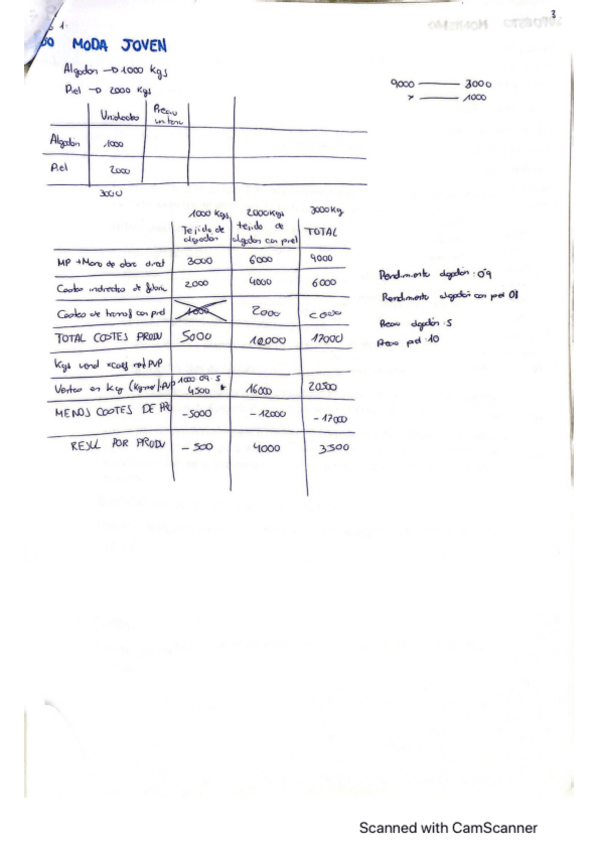 3
MODA JOVEN
Algodon → 1000 Kgs
Piel → 2000 Kgs
9000 — 3000
x — 1000
Unidades Precio
Algodon 1000
Piel 2000
3000
1000 Kgs 2000Kgs 3000Kg
Tejido de algodon tejido de algodon con piel TOTAL
MP + Mano de obra direct 3000 6000 9000
Costes indirectos de fabric 2.000 4000 6000
Costes de transf con piel 1000 2000
TOTAL COSTES PRODU 5000 12000 17000
Kgs vend × coef rend PVP
Ventas en Kg (Kg · ren) · PVP 1000 · 0'9 · 5 4500 16000 20500
MENOS COSTES DE PR -5000 -12000 -17000
RESUL POR PRODU -500 4000 3500
Rendimiento algodon: 0'9
Rendimiento algodon con piel 0'8
Precio algodon: 5
Precio piel: 10
Scanned with CamScanner